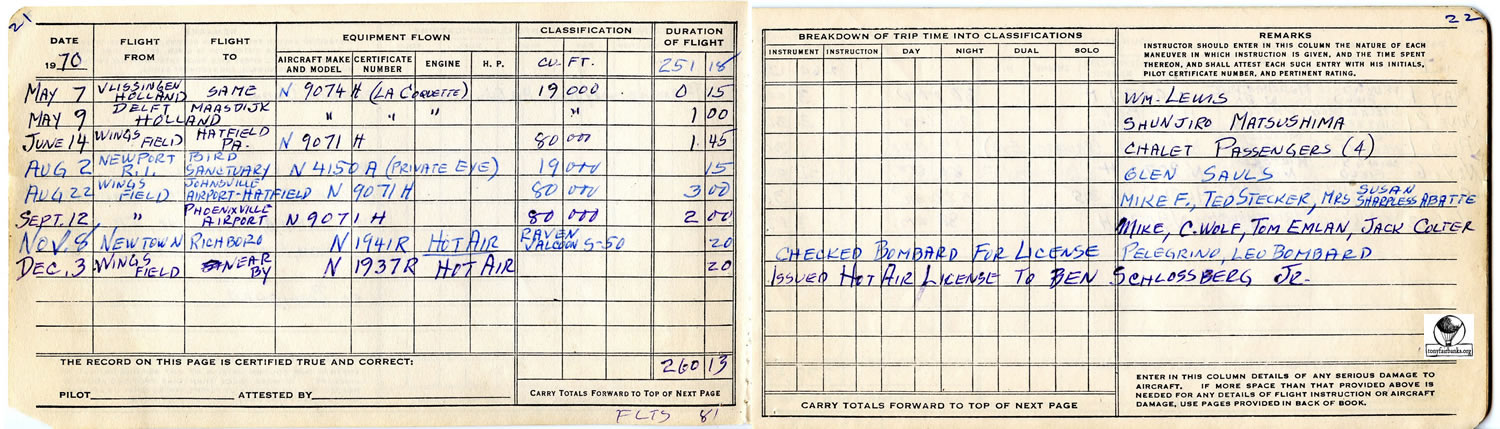 21
DATE
1970
FLIGHT FROM
FLIGHT TO
EQUIPMENT FLOWN
AIRCRAFT MAKE AND MODEL
CERTIFICATE NUMBER
ENGINE
H. P.
CLASSIFICATION
CU. FT.
DURATION OF FLIGHT
251 18
MAY 7 VLISSINGEN HOLLAND SAME N 9074 H (LA COQUETTE) 19 000 0 15
MAY 9 DELFT HOLLAND MAASDIJK " " " " 1 00
JUNE 14 WINGS FIELD HATFIELD PA. N 9071 H 80 000 1.45
AUG 2 NEWPORT R.I. BIRD SANCTUARY N 4150 A (PRIVATE EYE) 19 000 15
AUG 22 WINGS FIELD JOHNSVILLE AIRPORT-HATFIELD N 9071 H 80 000 3 00
SEPT. 12 " PHOENIXVILLE AIRPORT N 9071 H 80 000 2 00
NOV. 8 NEWTOWN RICHBORO N 1941R HOT AIR RAVEN S-50 20
DEC. 3 WINGS FIELD NEAR BY N 1937R HOT AIR 20
THE RECORD ON THIS PAGE IS CERTIFIED TRUE AND CORRECT:
260 13
PILOT ATTESTED BY
CARRY TOTALS FORWARD TO TOP OF NEXT PAGE
FLTS 81
22
BREAKDOWN OF TRIP TIME INTO CLASSIFICATIONS
INSTRUMENT INSTRUCTION DAY NIGHT DUAL SOLO
REMARKS
INSTRUCTOR SHOULD ENTER IN THIS COLUMN THE NATURE OF EACH
MANEUVER IN WHICH INSTRUCTION IS GIVEN, AND THE TIME SPENT
THEREON, AND SHALL ATTEST EACH SUCH ENTRY WITH HIS INITIALS,
PILOT CERTIFICATE NUMBER, AND PERTINENT RATING.
WM. LEWIS
SHUNJIRO MATSUSHIMA
CHALET PASSENGERS (4)
GLEN SAULS
MIKE F., TED STECKER, MRS SUSAN SHARPLESS ABATTE
MIKE, C. WOLF, TOM EMLAN, JACK COLTER
CHECKED BOMBARD FOR LICENSE PELEGRINO, LEO BOMBARD
ISSUED HOT AIR LICENSE TO BEN SCHLOSSBERG JR.
tonyfairbanks.org
ENTER IN THIS COLUMN DETAILS OF ANY SERIOUS DAMAGE TO
AIRCRAFT. IF MORE SPACE THAN THAT PROVIDED ABOVE IS
NEEDED FOR ANY DETAILS OF FLIGHT INSTRUCTION OR AIRCRAFT
DAMAGE, USE PAGES PROVIDED IN BACK OF BOOK.
CARRY TOTALS FORWARD TO TOP OF NEXT PAGE